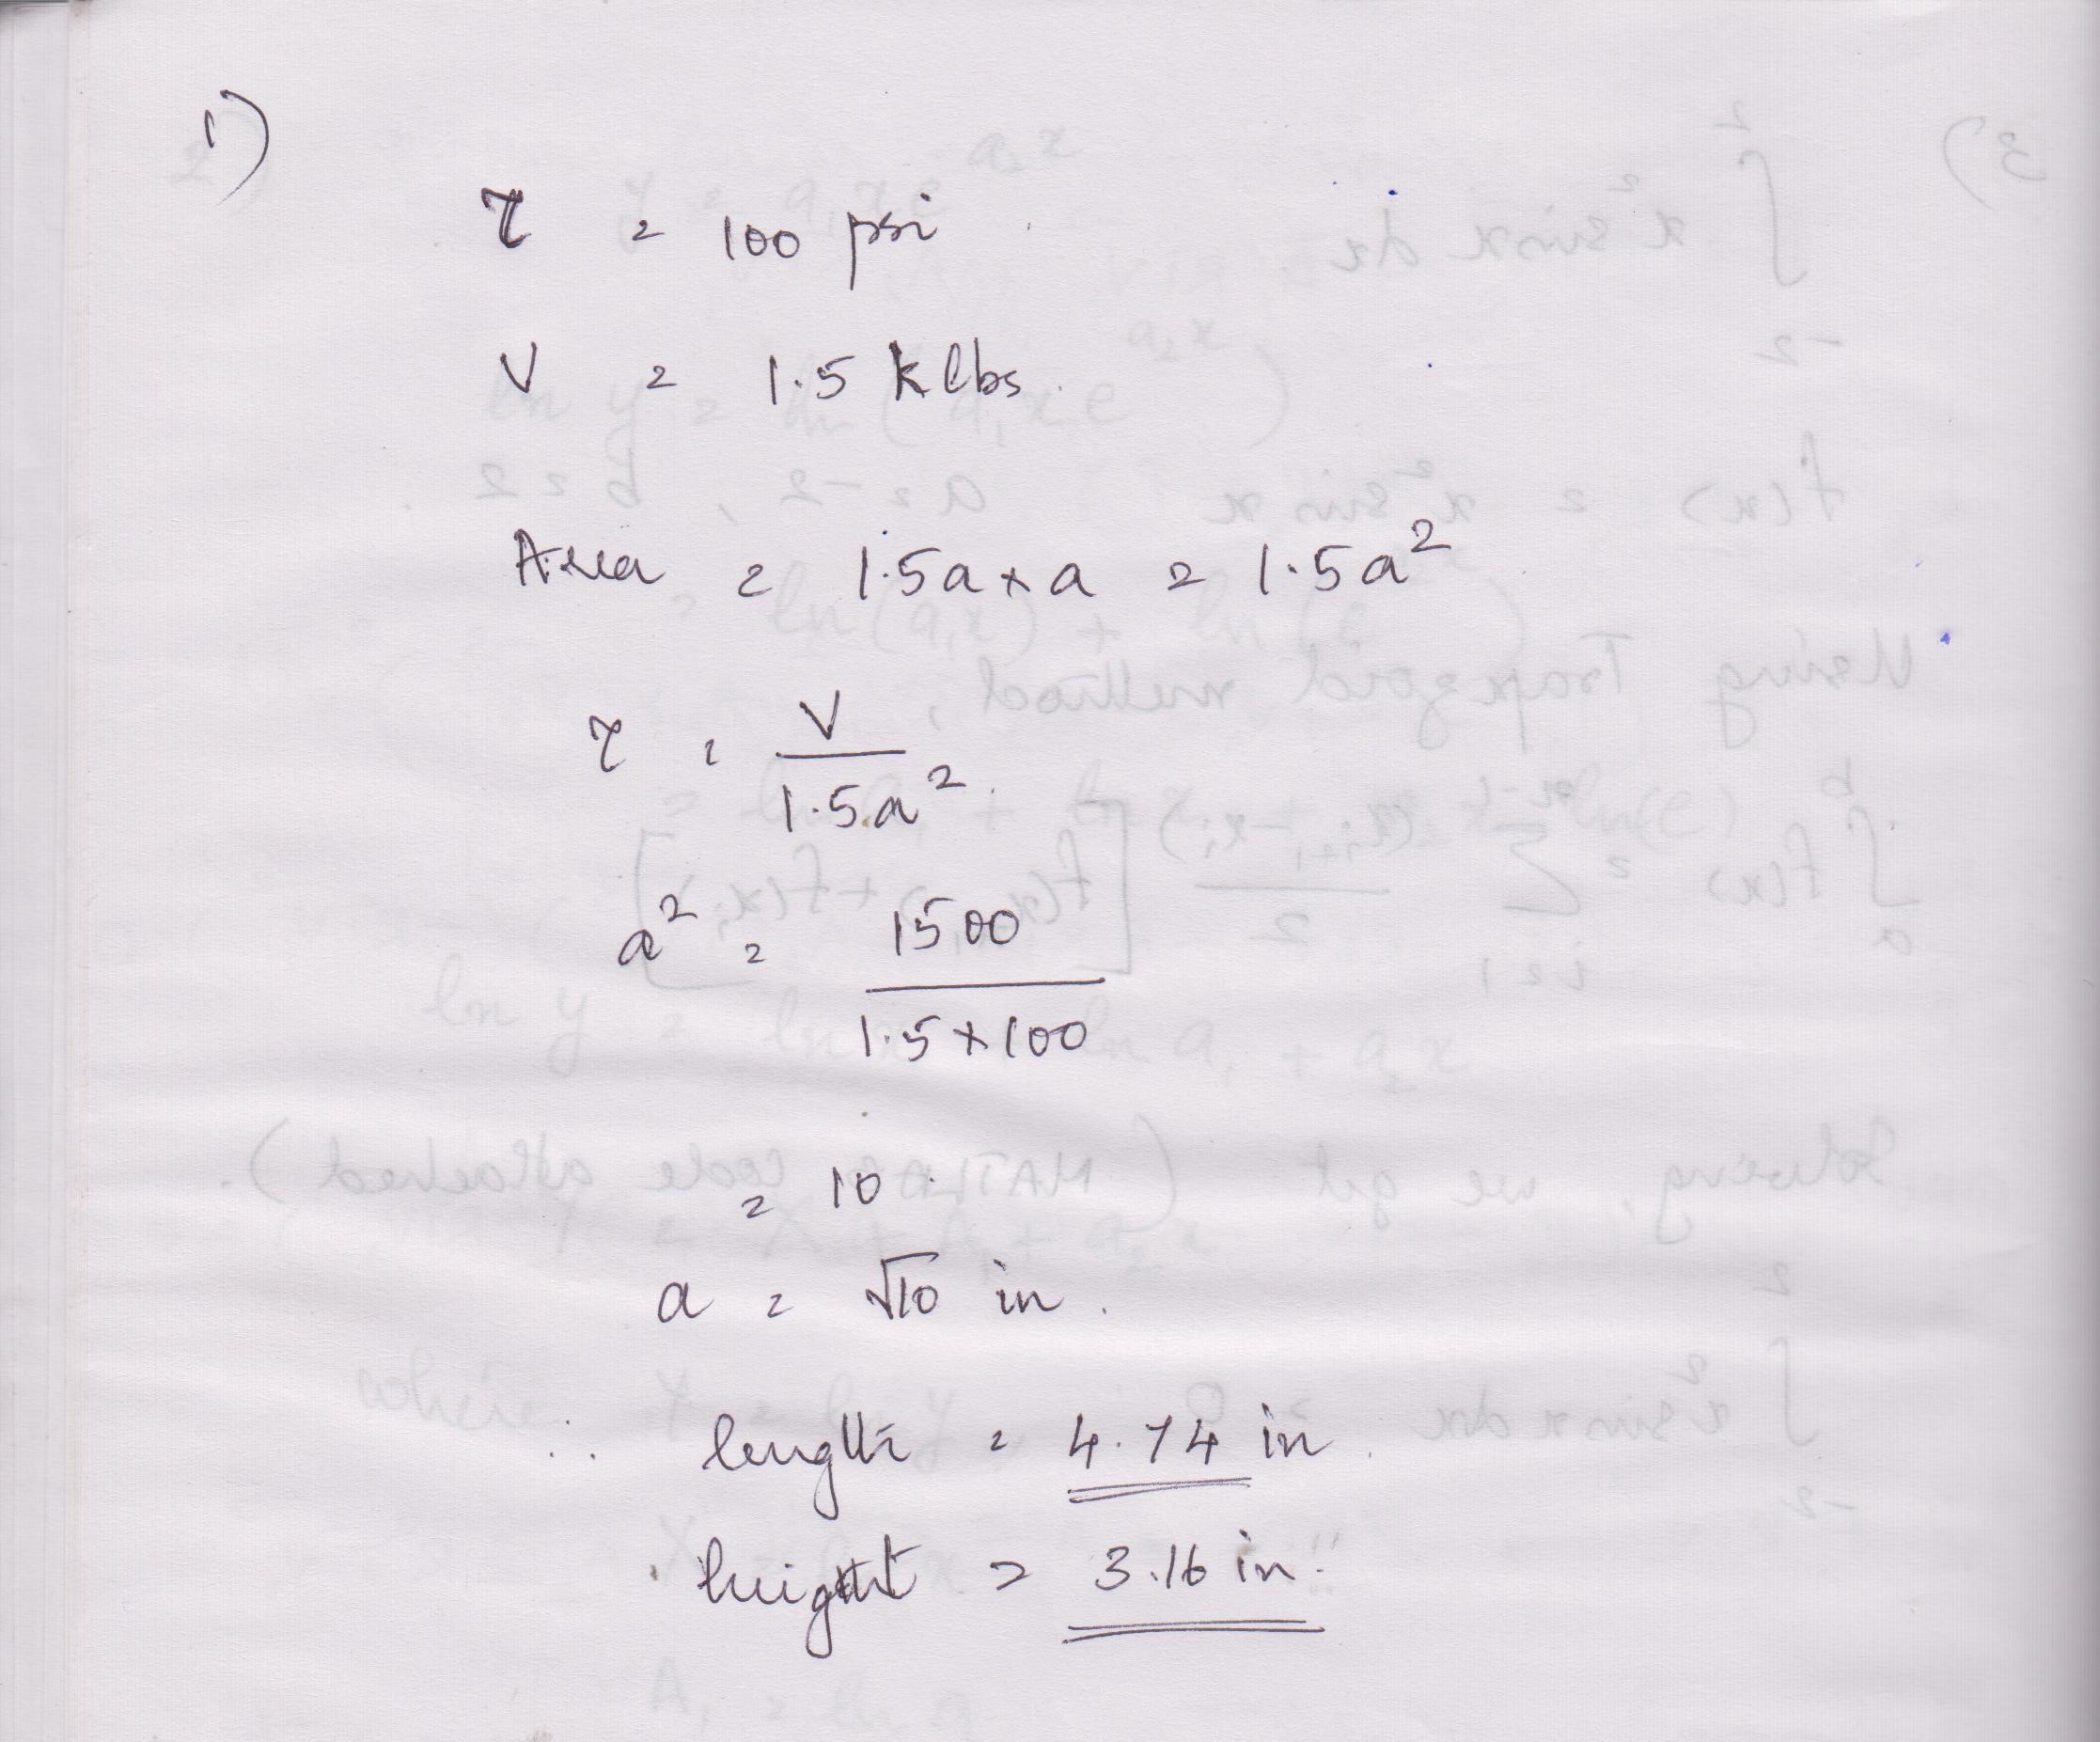 1)
τ = 100 psi
V = 1.5 k lbs.
Area = 1.5a x a = 1.5a²
τ = V / 1.5a²
a² = 1500 / 1.5 x 100
= 10.
a = √10 in.
∴ length = 4.74 in.
height = 3.16 in.